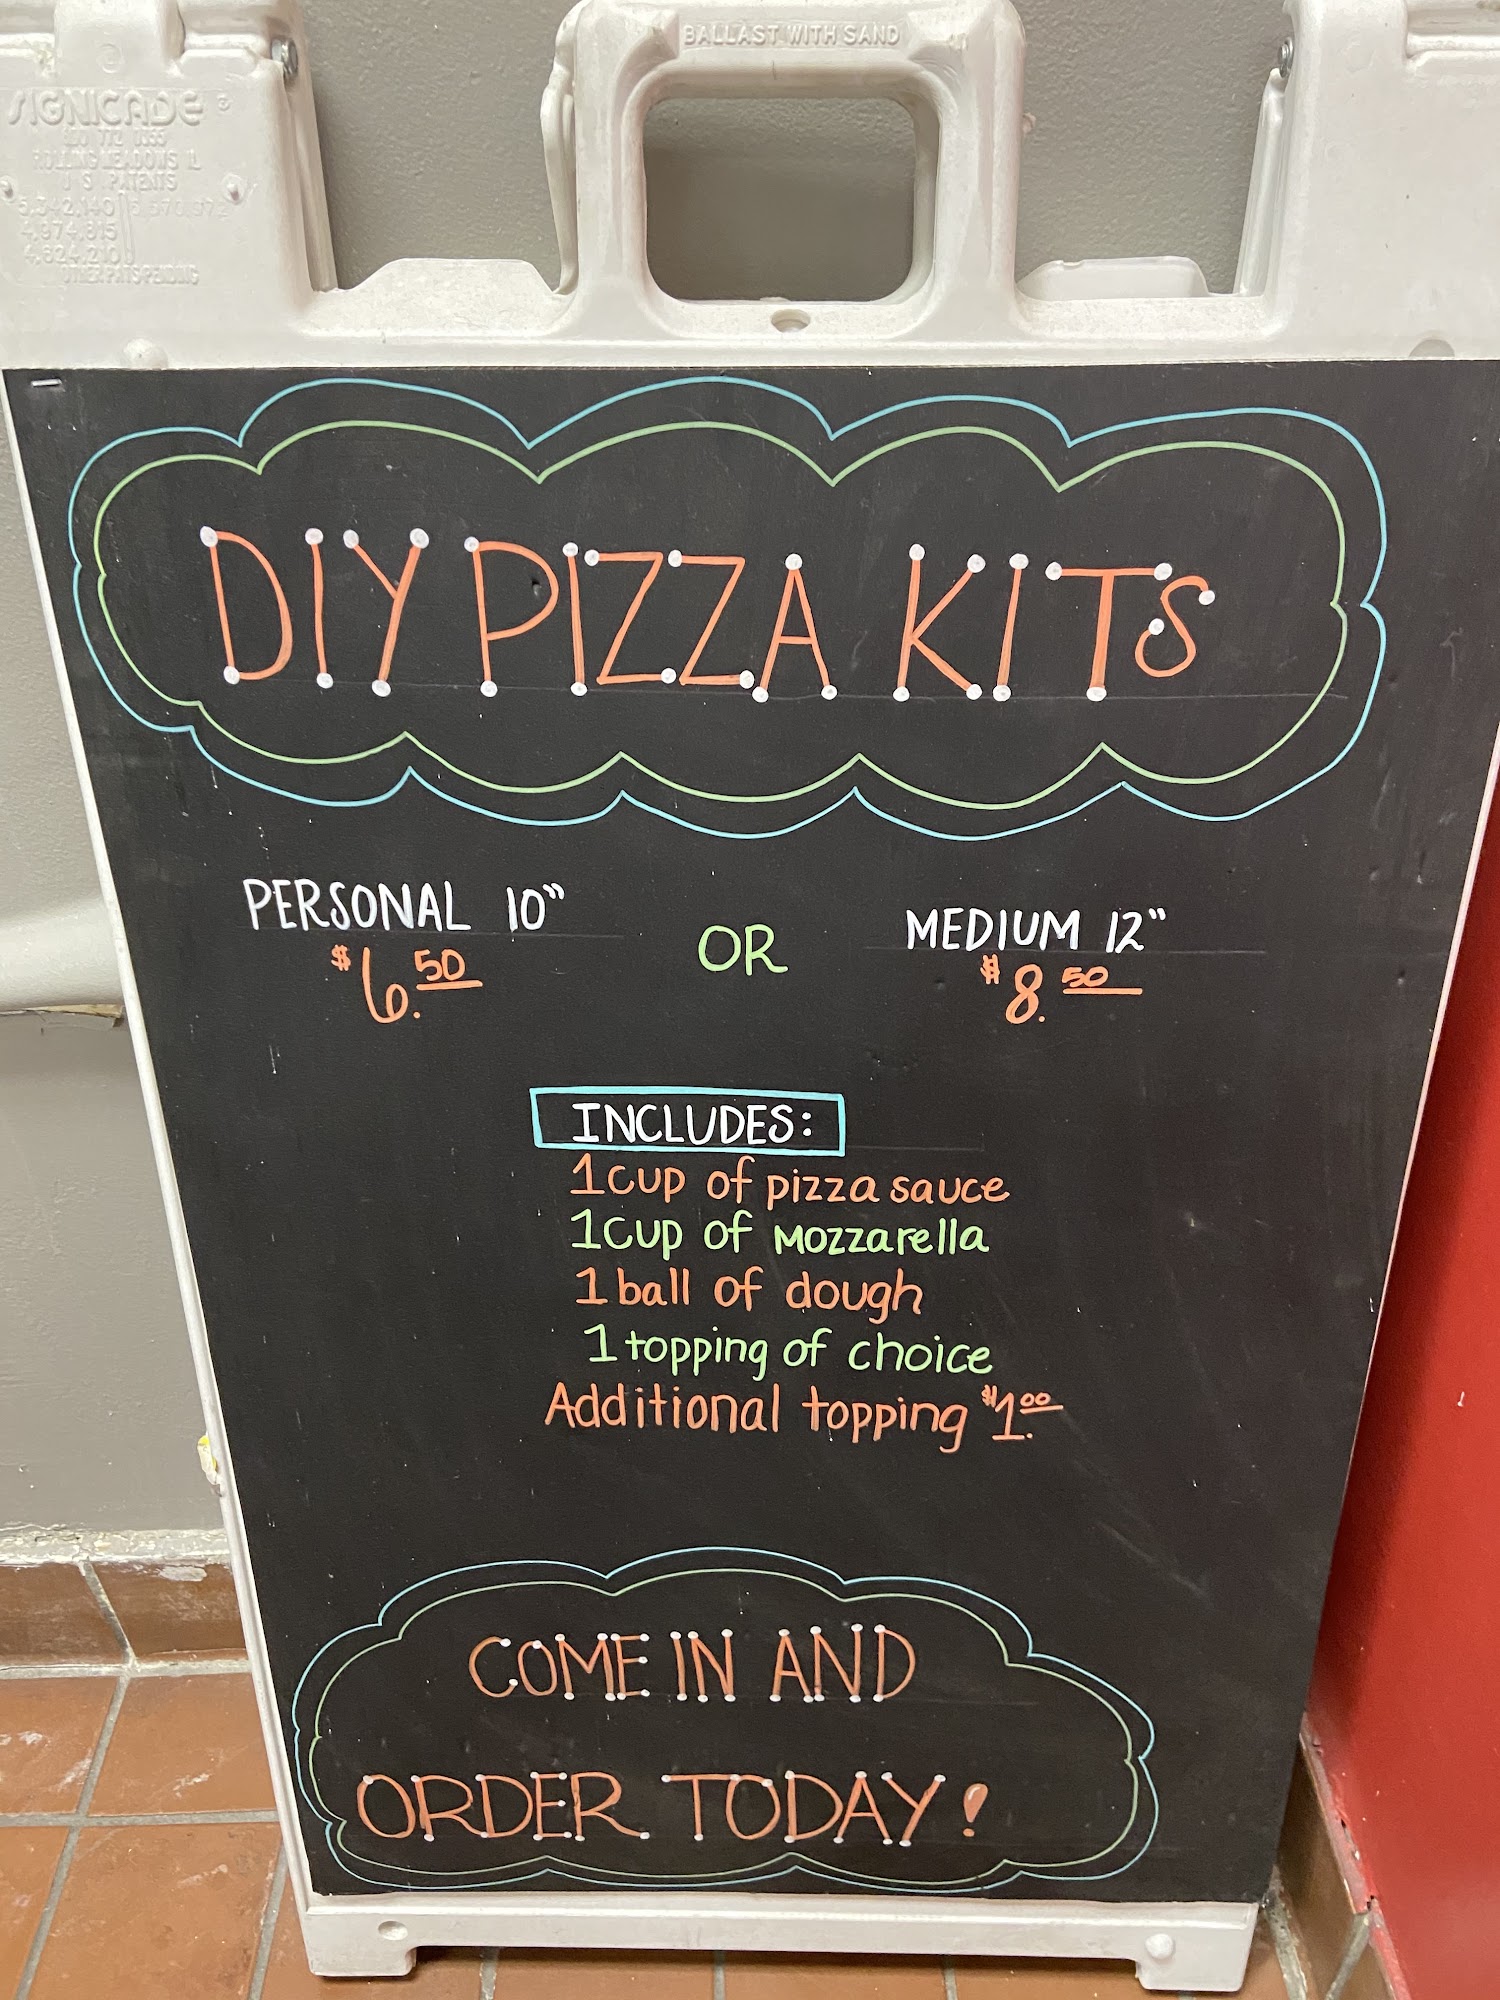 BALLAST WITH SAND
SIGNICADE ®
800 772 0055
ROLLING MEADOWS IL
U S PATENTS
4,974,815
OTHER PATS PENDING
DIY PIZZA KITS
PERSONAL 10"
$6.50
OR
MEDIUM 12"
$8.50
INCLUDES:
1 cup of pizza sauce
1 cup of mozzarella
1 ball of dough
1 topping of choice
Additional topping $1.00
COME IN AND
ORDER TODAY!